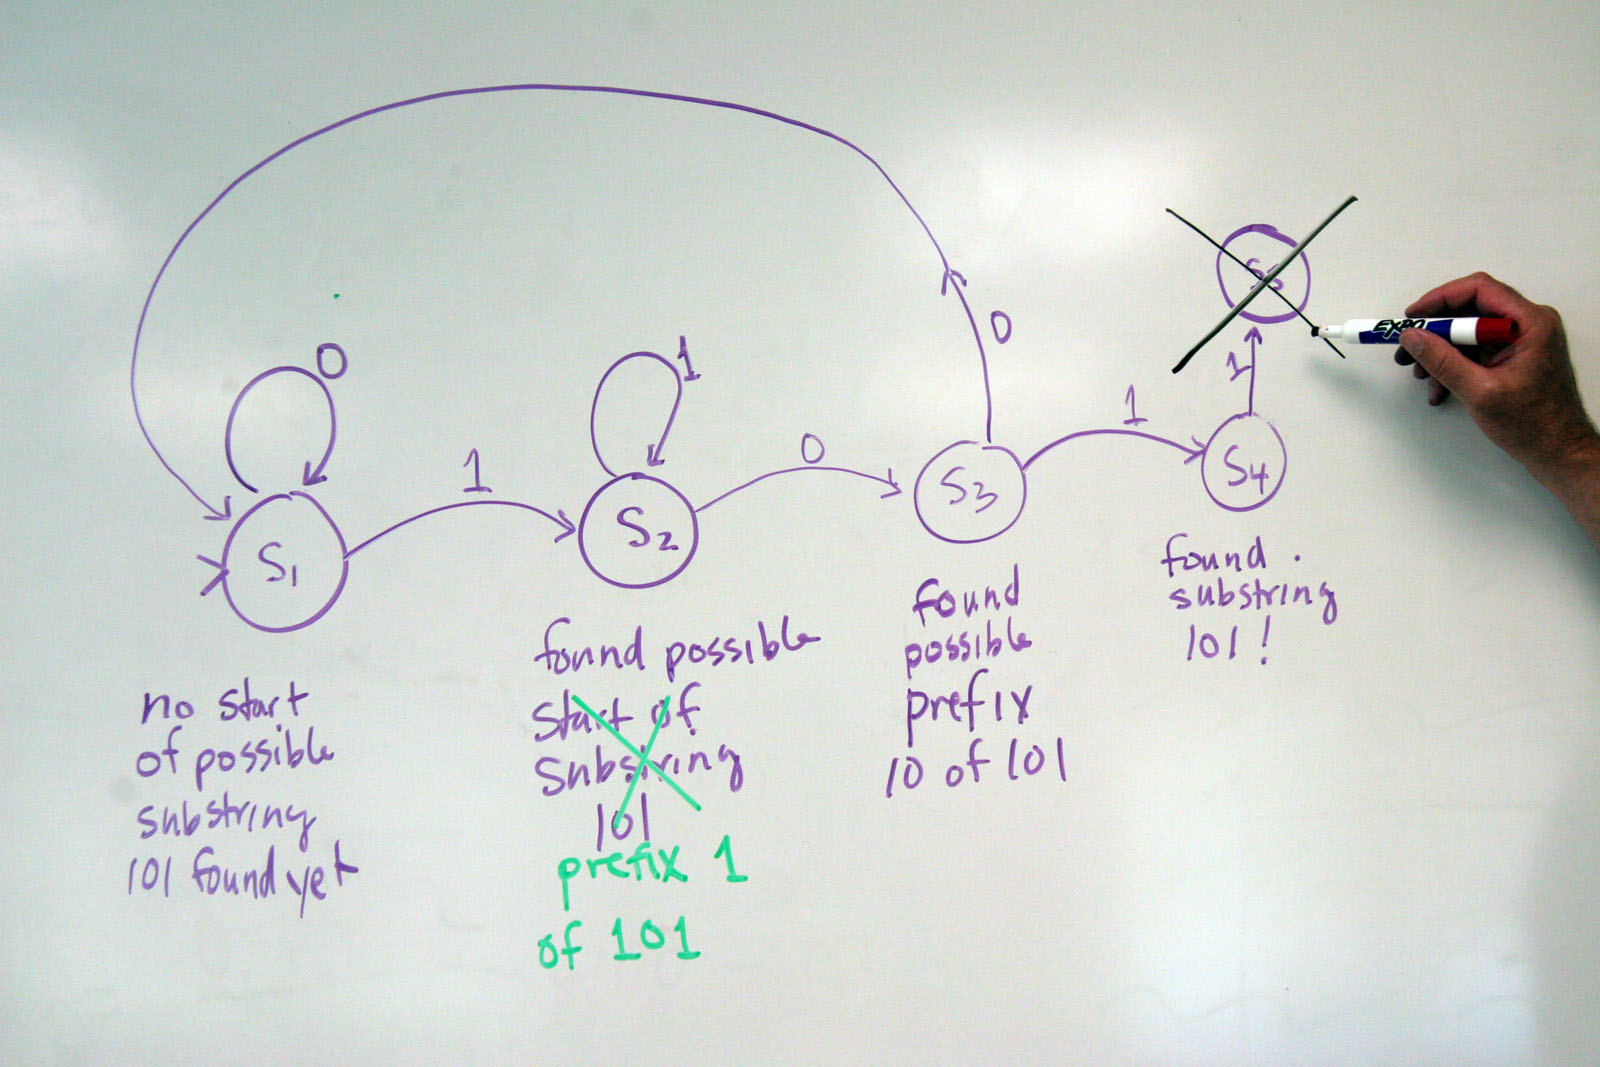 0
1
0
1
0
1
1
S5
EXPO
S1
S2
S3
S4
no start
of possible
substring
101 found yet
found possible
start of
substring
101
prefix 1
of 101
found
possible
prefix
10 of 101
found
substring
101!